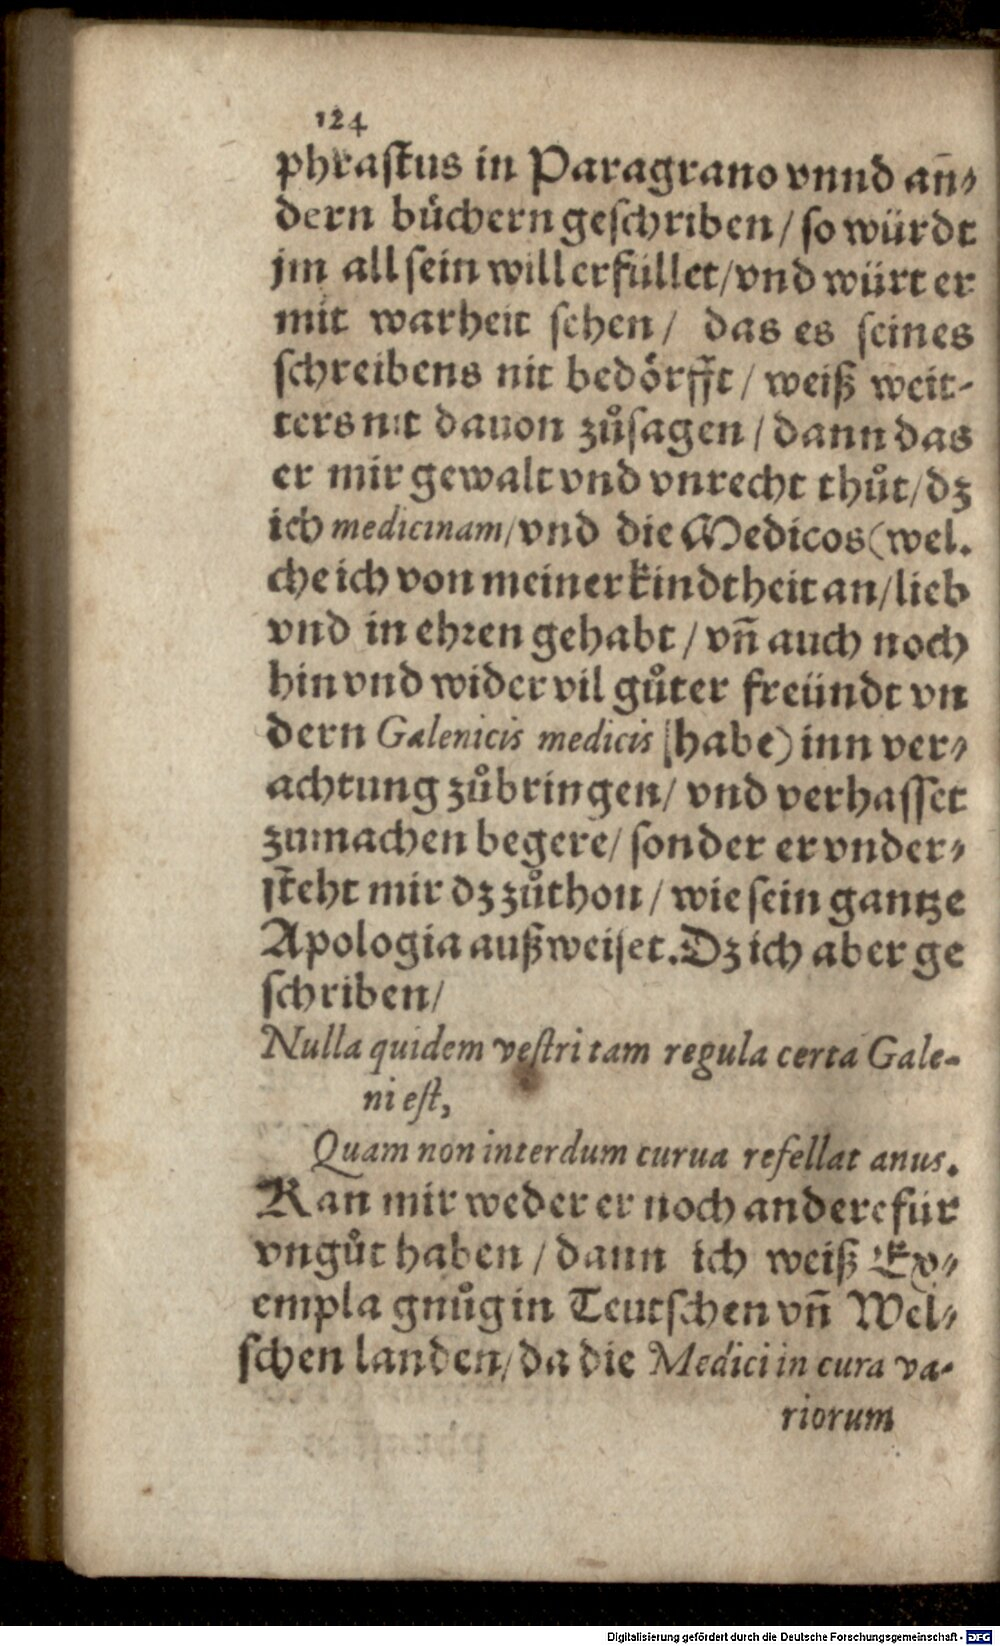 124
phraſtus in Paragrano vnnd añ⸗
dern bůchern geſchriben / ſo würdt
jm all ſein will erfüllet / vnd würt er
mit warheit ſehen / das es ſeines
ſchreibens nit bedörfft / weiß weit-
ters nit dauon zůſagen / dann das
er mir gewalt vnd vnrecht thůt / dz
ich medicinam / vnd die Medicos (wel.
che ich von meiner kindtheit an / lieb
vnd in ehꝛen gehabt / vñ auch noch
hin vnd wider vil gůter freündt vn
dern Galenicis medicis habe) inn ver⸗
achtung zůbringen / vnd verhaſſet
zumachen begere / ſonder er vnder⸗
ſteht mir dz zůthon / wie ſein gantze
Apologia außweiſet. Dz ich aber ge
ſchriben /
Nulla quidem veſtri tam regula certa Gale-
ni eſt,
Quam non interdum curua refellat anus.
Kan mir weder er noch andere für
vngůt haben / dann ich weiß Ex⸗
empla gnůg in Teutſchen vñ Wel⸗
ſchen landen / da die Medici in cura va-
riorum
Digitalisierung gefördert durch die Deutsche Forschungsgemeinschaft - DFG